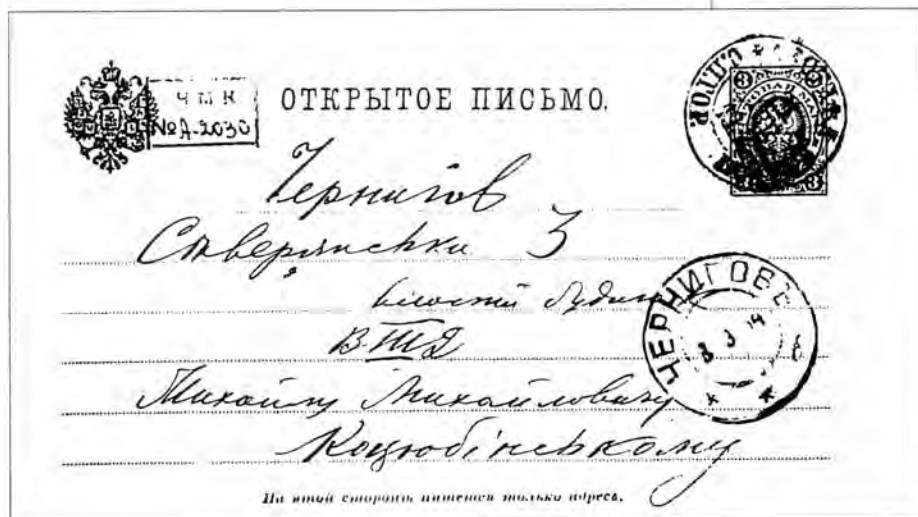 Ч М К
№ А-2030
ОТКРЫТОЕ ПИСЬМО.
Чернигов
Сѣверянська 3
В. Ш Д
Михайлу Михайловичу
Коцюбінському
ЧЕРНИГОВЪ
8 3
На этой сторонѣ пишется только адресъ.